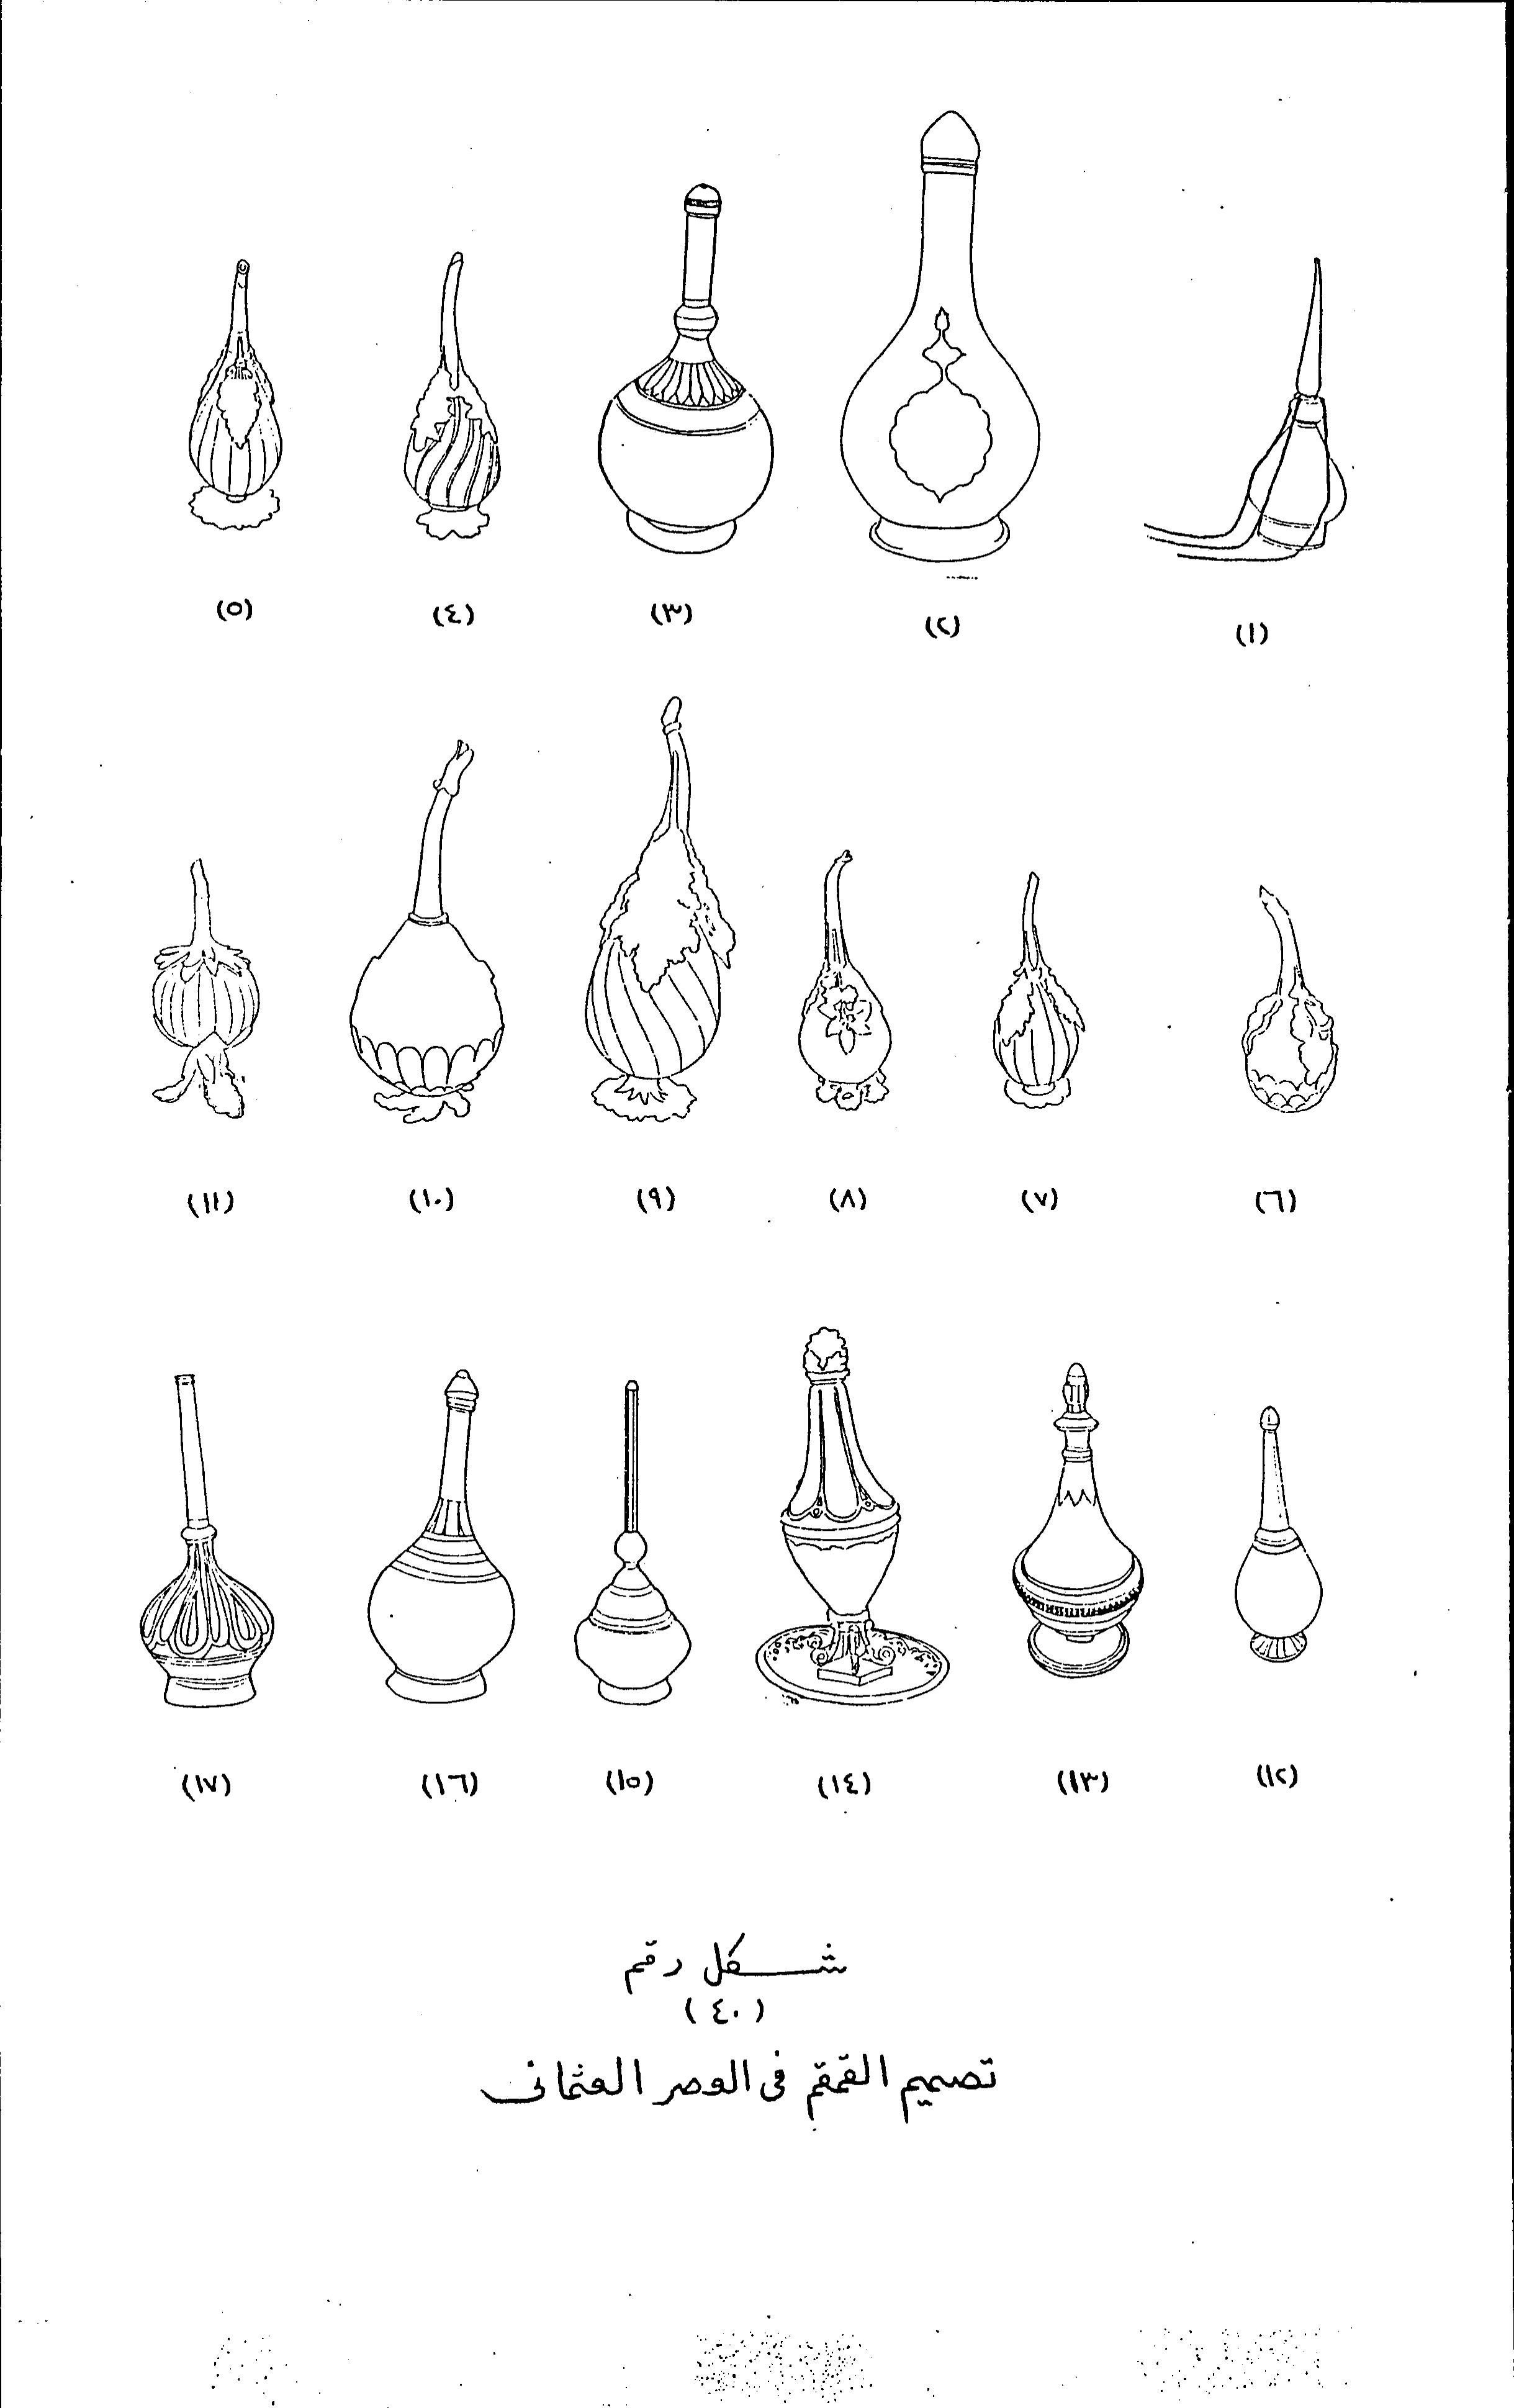 (١) (٢) (٣) (٤) (٥)
(٦) (٧) (٨) (٩) (١٠) (١١)
(١٢) (١٣) (١٤) (١٥) (١٦) (١٧)
شكل رقم
(٤٠)
تصميم القمقم فى العصر العثمانى